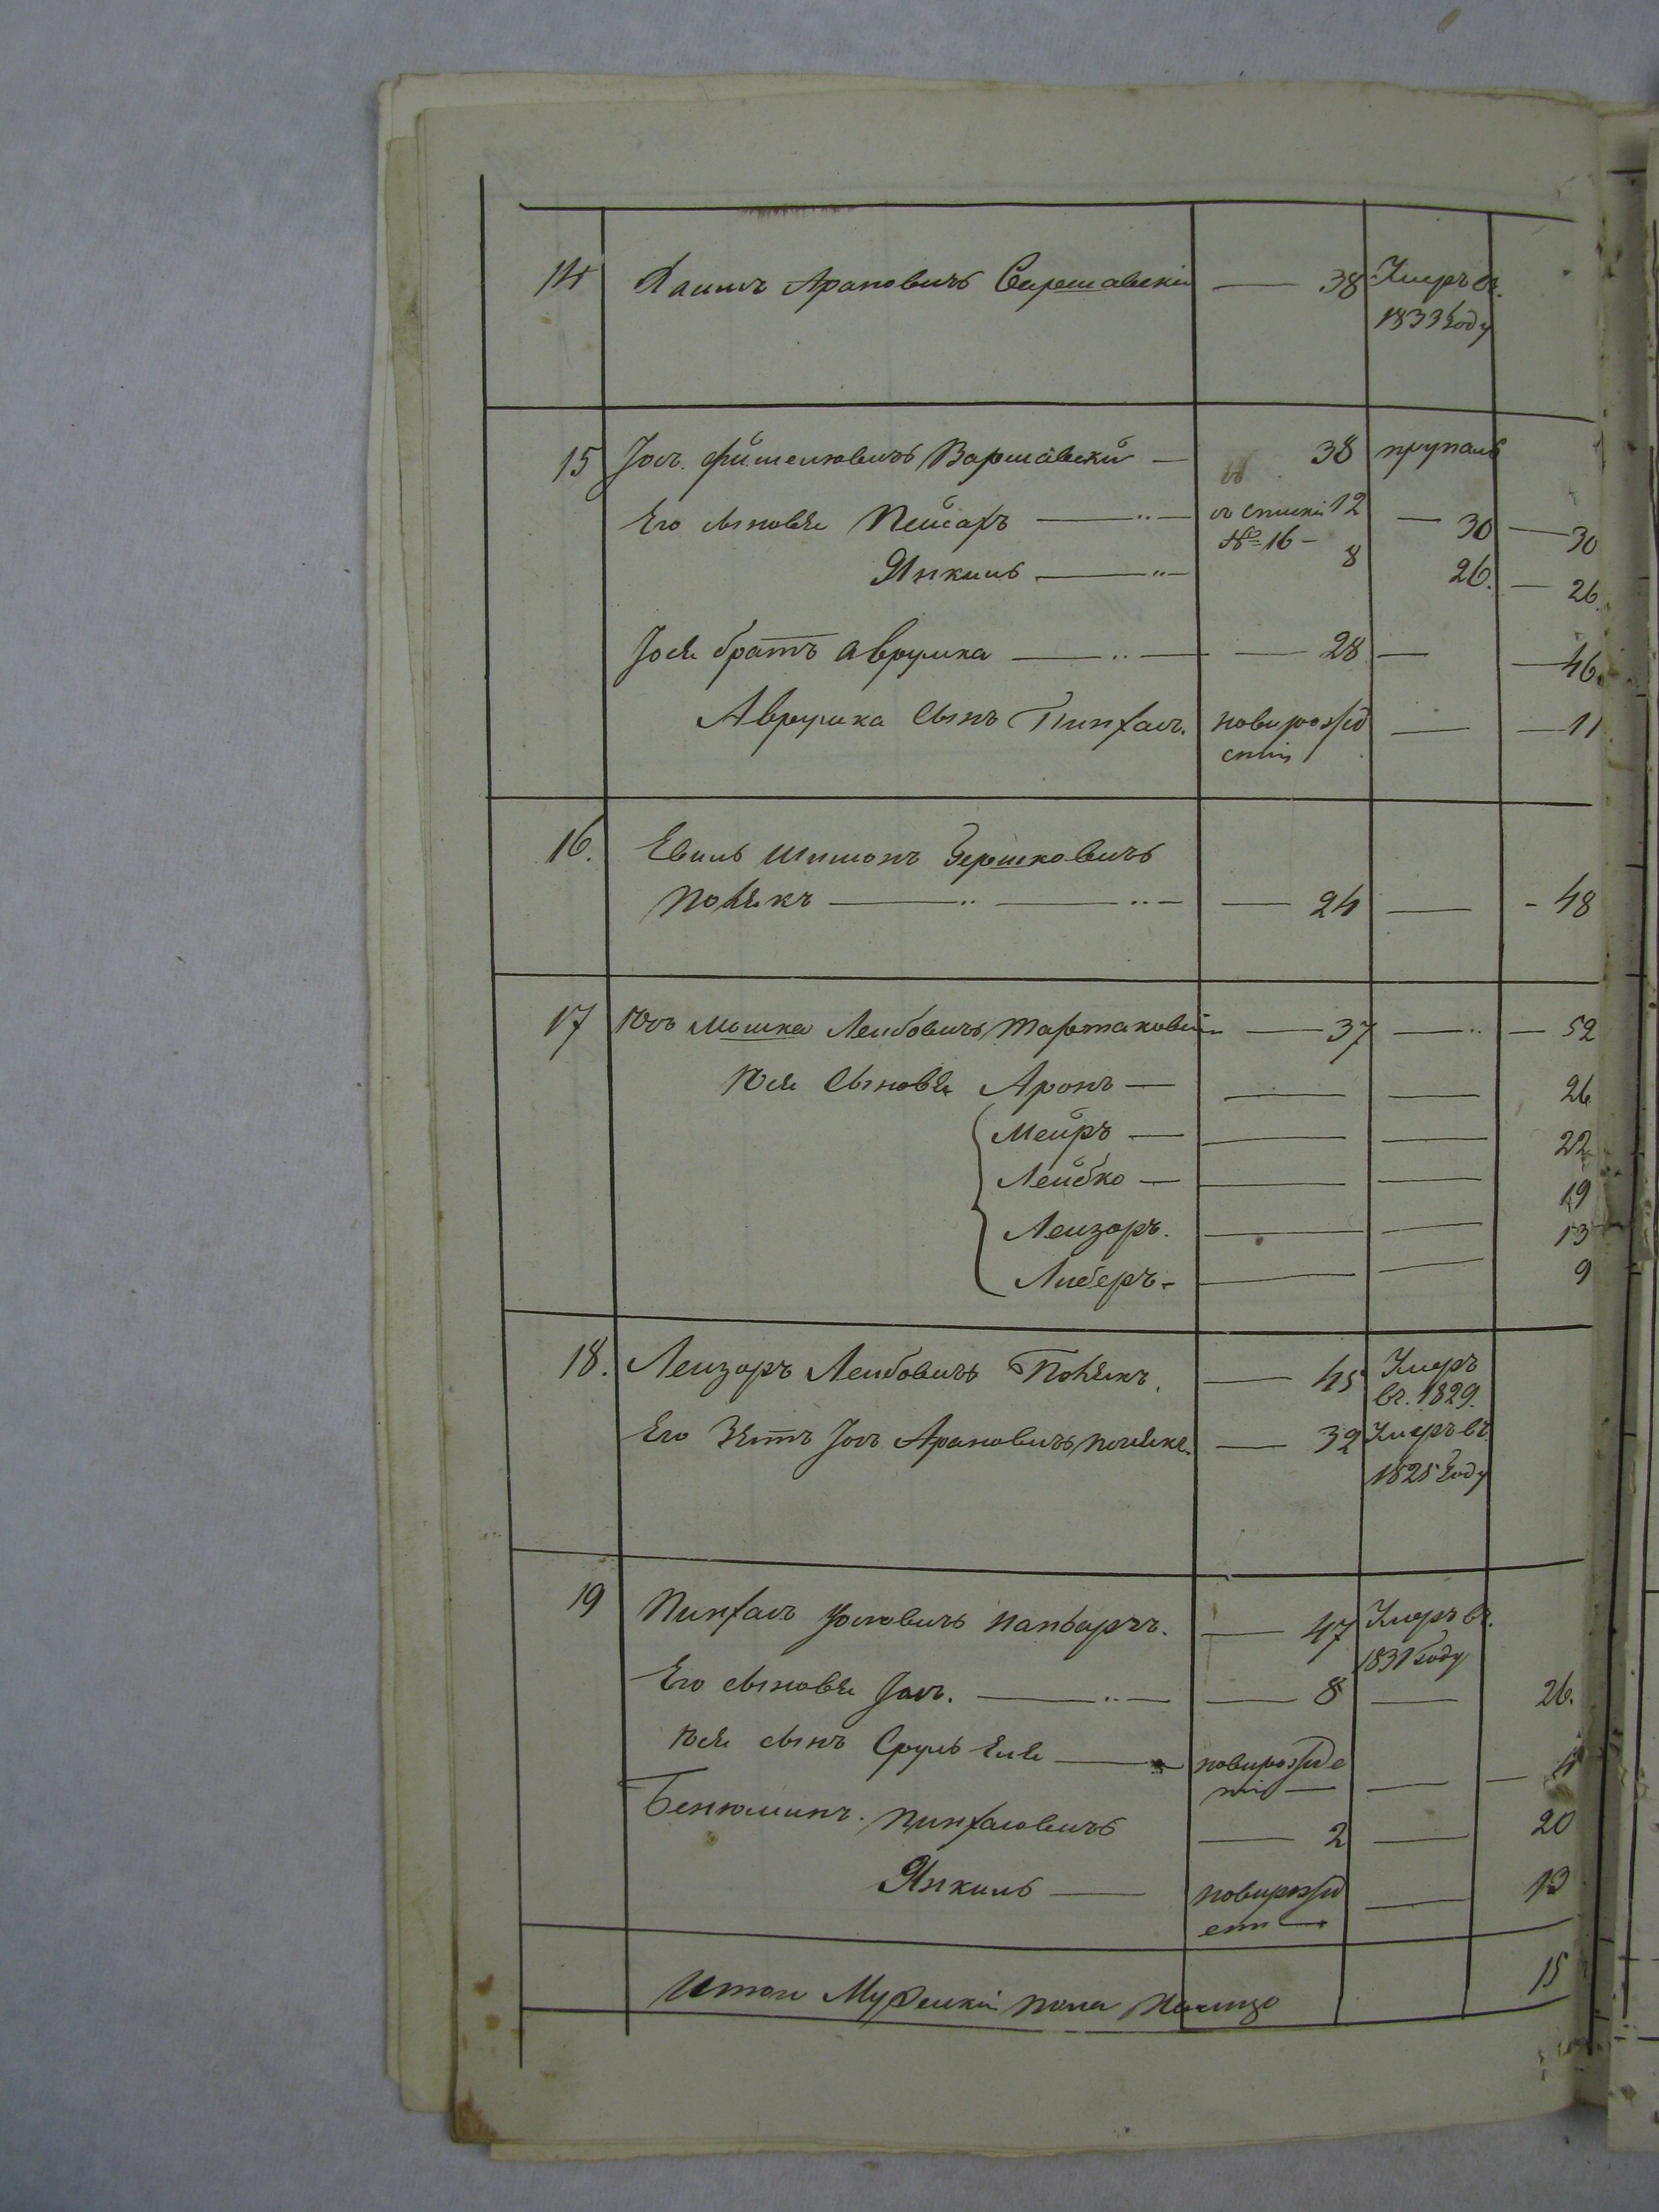 14 Хаимъ Араповичъ Варшавскій — 38 Умеръ въ
1833 году
15 Іосъ Фишелювичъ Варшавскій — 38 пропалъ
въ
Его сыновья Пейсахъ — въ спискѣ 12 — 30 — 30
№ 16 —
Янкиль — 8 26. — 26.
Іося братъ Аврумка — 28 — — 46.
Аврумка сынъ Пинхасъ. новорожд — — 11
енный
16. Евиль Шимонъ Гершковичъ
Полякъ — — 24 — - 48
17 Юсъ Мошка Лейбовичъ Тартаковскій — 37 — — 52
Юся сыновья Аронъ — — — 26
Мейръ — — — 22
Лейбко — — — 19
Лейзоръ. — — 13
Либеръ - — — 9
18. Лейзоръ Лейбовичъ Полякъ. — 45 Умеръ
въ. 1829.
Его Зять Іосъ Араповичъ Полякъ. — 32 Умеръ въ.
1825 году
19 Пинхасъ Іосиовичъ — 47 Умеръ въ.
1831 году
Его сыновья Іосъ. — — 8 — 26.
Юся сынъ Сруль Еля — новорожде — — 4
ный —
Бенюминъ. Пинхасовичъ — 2 — 20
Янкиль — новорожд — 13
ен —
Итого Мужескій пола налицо 15